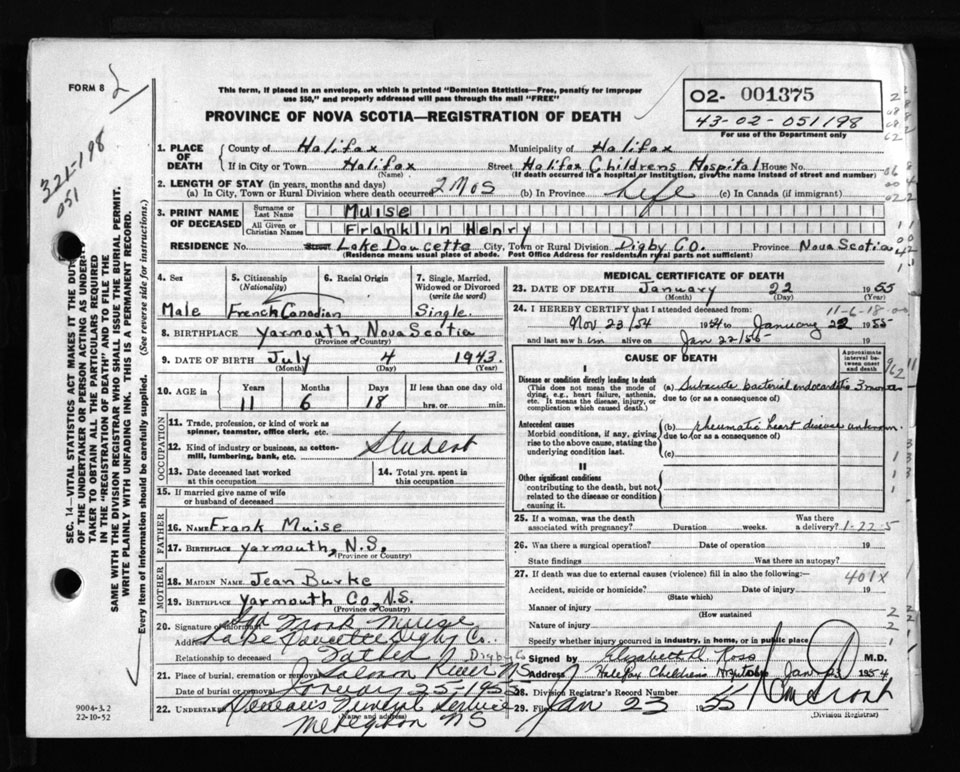 FORM 8
321-198
051
This form, if placed in an envelope, on which is printed "Dominion Statistics—Free, penalty for improper
use $50," and properly addressed will pass through the mail "FREE"
PROVINCE OF NOVA SCOTIA—REGISTRATION OF DEATH
02- 001375
43-02-051198
For use of the Department only
SEC. 14—VITAL STATISTICS ACT MAKES IT THE DUTY
OF THE UNDERTAKER OR PERSON ACTING AS UNDERTAKER
TAKER TO OBTAIN ALL THE PARTICULARS REQUIRED
IN THE "REGISTRATION OF DEATH" AND TO FILE THE
SAME WITH THE DIVISION REGISTRAR WHO SHALL ISSUE THE BURIAL PERMIT.
WRITE PLAINLY WITH UNFADING INK. THIS IS A PERMANENT RECORD.
Every item of information should be carefully supplied. (See reverse side for instructions.)
9004-3.2
22-10-52
1. PLACE OF DEATH County of Halifax Municipality of Halifax
If in City or Town Halifax Street Halifax Childrens Hospital House No.
(Name) (If death occurred in a hospital or institution, give the name instead of street and number)
2. LENGTH OF STAY (in years, months and days)
(a) In City, Town or Rural Division where death occurred 2 Mos (b) In Province Life (c) In Canada (if immigrant)
3. PRINT NAME OF DECEASED Surname or Last Name Muise
All Given or Christian Names Franklin Henry
RESIDENCE No. Street Lake Doucette City, Town or Rural Division Digby Co. Province Nova Scotia
(Residence means usual place of abode. Post Office Address for residents in rural parts not sufficient)
4. Sex 5. Citizenship (Nationality) 6. Racial Origin 7. Single, Married, Widowed or Divorced (write the word)
Male French Canadian Single.
8. BIRTHPLACE Yarmouth, Nova Scotia
(Province or Country)
9. DATE OF BIRTH July 4 1943.
(Month) (Day) (Year)
10. AGE in Years Months Days If less than one day old
11 6 18 hrs. or min.
OCCUPATION
11. Trade, profession, or kind of work as spinner, teamster, office clerk, etc.
12. Kind of industry or business, as cotton-mill, lumbering, bank, etc. Student
13. Date deceased last worked at this occupation 14. Total yrs. spent in this occupation
15. If married give name of wife or husband of deceased
FATHER
16. NAME Frank Muise
17. BIRTHPLACE Yarmouth, N.S.
(Province or Country)
MOTHER
18. MAIDEN NAME Jean Burke
19. BIRTHPLACE Yarmouth Co, N.S.
(Province or Country)
20. Signature of informant Sgd Frank Muise
Address Lake Doucette Digby Co.
Relationship to deceased Father
21. Place of burial, cremation or removal Salmon River NS Digby Co
Date of burial or removal January 25-1955
22. UNDERTAKER Funeral Service
Meteghan NS
(Name and address)
MEDICAL CERTIFICATE OF DEATH
23. DATE OF DEATH January 22 1955
(Month) (Day) (Year)
24. I HEREBY CERTIFY that I attended deceased from: 11-6-18-00
Nov. 23/54 1954 to January 22 1955
and last saw h im alive on Jan 22/55 19
CAUSE OF DEATH
Approximate interval between onset and death
I
Disease or condition directly leading to death
(This does not mean the mode of dying, e.g., heart failure, asthenia, etc. It means the disease, injury, or complication which caused death.)
(a) Subacute bacterial endocarditis 3 months
due to (or as a consequence of)
Antecedent causes
Morbid conditions, if any, giving rise to the above cause, stating the underlying condition last.
(b) rheumatic heart disease unknown.
due to (or as a consequence of)
(c)
II
Other significant conditions
contributing to the death, but not related to the disease or condition causing it.
25. If a woman, was the death associated with pregnancy? Duration weeks. Was there a delivery? 1-22-5
26. Was there a surgical operation? Date of operation 19
State findings Was there an autopsy?
27. If death was due to external causes (violence) fill in also the following:— 401X
Accident, suicide or homicide? Date of injury 19
(State which)
Manner of injury
(How sustained
Nature of injury
Specify whether injury occurred in industry, in home, or in public place
Signed by Elizabeth D. Ross M.D.
Address Halifax Childrens Hospital Date Jan 23 1954
28. Division Registrar's Record Number
29. Filed Jan 23 1955
(Division Registrar)